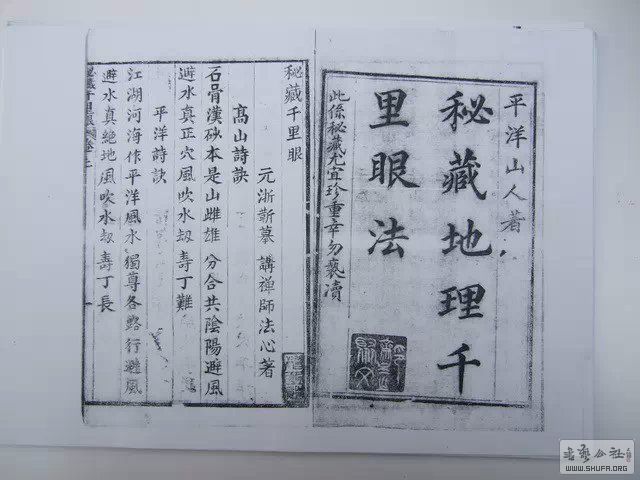 平洋山人著
秘藏地理千
里眼法
此係秘藏尤宜珍重幸勿褻瀆
秘藏千里眼
元浙蘄摹 講禪師法心著
高山詩訣
石骨漢砂本是山雌雄 分合共陰陽避風
避水真正穴風吹水刼壽丁難
平洋詩訣
江湖河海作平洋風水 獨尊各路行避風
避水真絕地風吹水刼 壽丁長
WWW.SHUFA.ORG